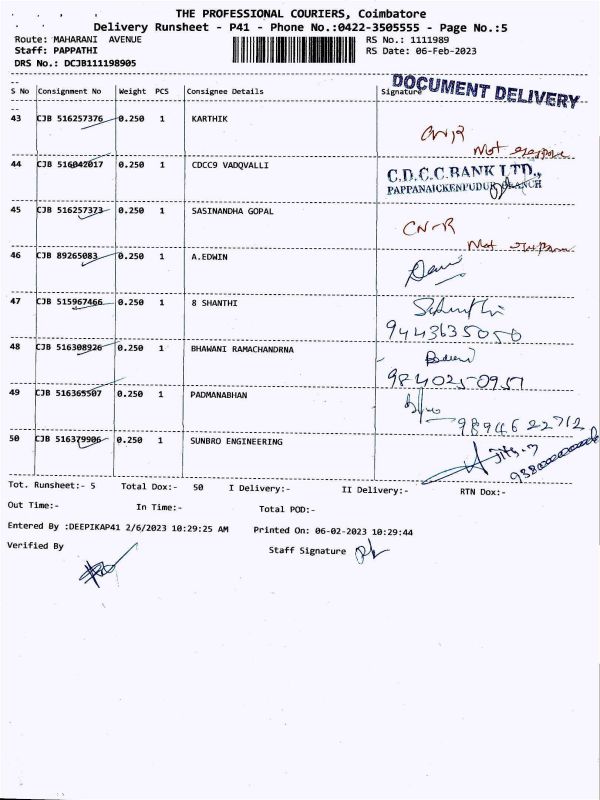 THE PROFESSIONAL COURIERS, Coimbatore
Delivery Runsheet - P41 - Phone No.:0422-3505555 - Page No.:5
Route: MAHARANI AVENUE RS No.: 1111989
Staff: PAPPATHI RS Date: 06-Feb-2023
DRS No.: DCJB111198905
DOCUMENT DELIVERY
S No Consignment No Weight PCS Consignee Details Signature
43 CJB 516257376 0.250 1 KARTHIK
CNR
Not
44 CJB 516042017 0.250 1 CDCC9 VADQVALLI
C.D.C.C.BANK LTD.,
PAPPANAICKENPUDUR BRANCH
45 CJB 516257373 0.250 1 SASINANDHA GOPAL
CNR
Not
46 CJB 89265083 0.250 1 A.EDWIN
47 CJB 515967466 0.250 1 8 SHANTHI
Shanthi
9443635050
48 CJB 516308926 0.250 1 BHAWANI RAMACHANDRNA
984025-0951
49 CJB 516365507 0.250 1 PADMANABHAN
9894622712
50 CJB 516379906 0.250 1 SUNBRO ENGINEERING
Tot. Runsheet:- 5 Total Dox:- 50 I Delivery:- II Delivery:- RTN Dox:-
Out Time:- In Time:- Total POD:-
Entered By :DEEPIKAP41 2/6/2023 10:29:25 AM Printed On: 06-02-2023 10:29:44
Verified By Staff Signature